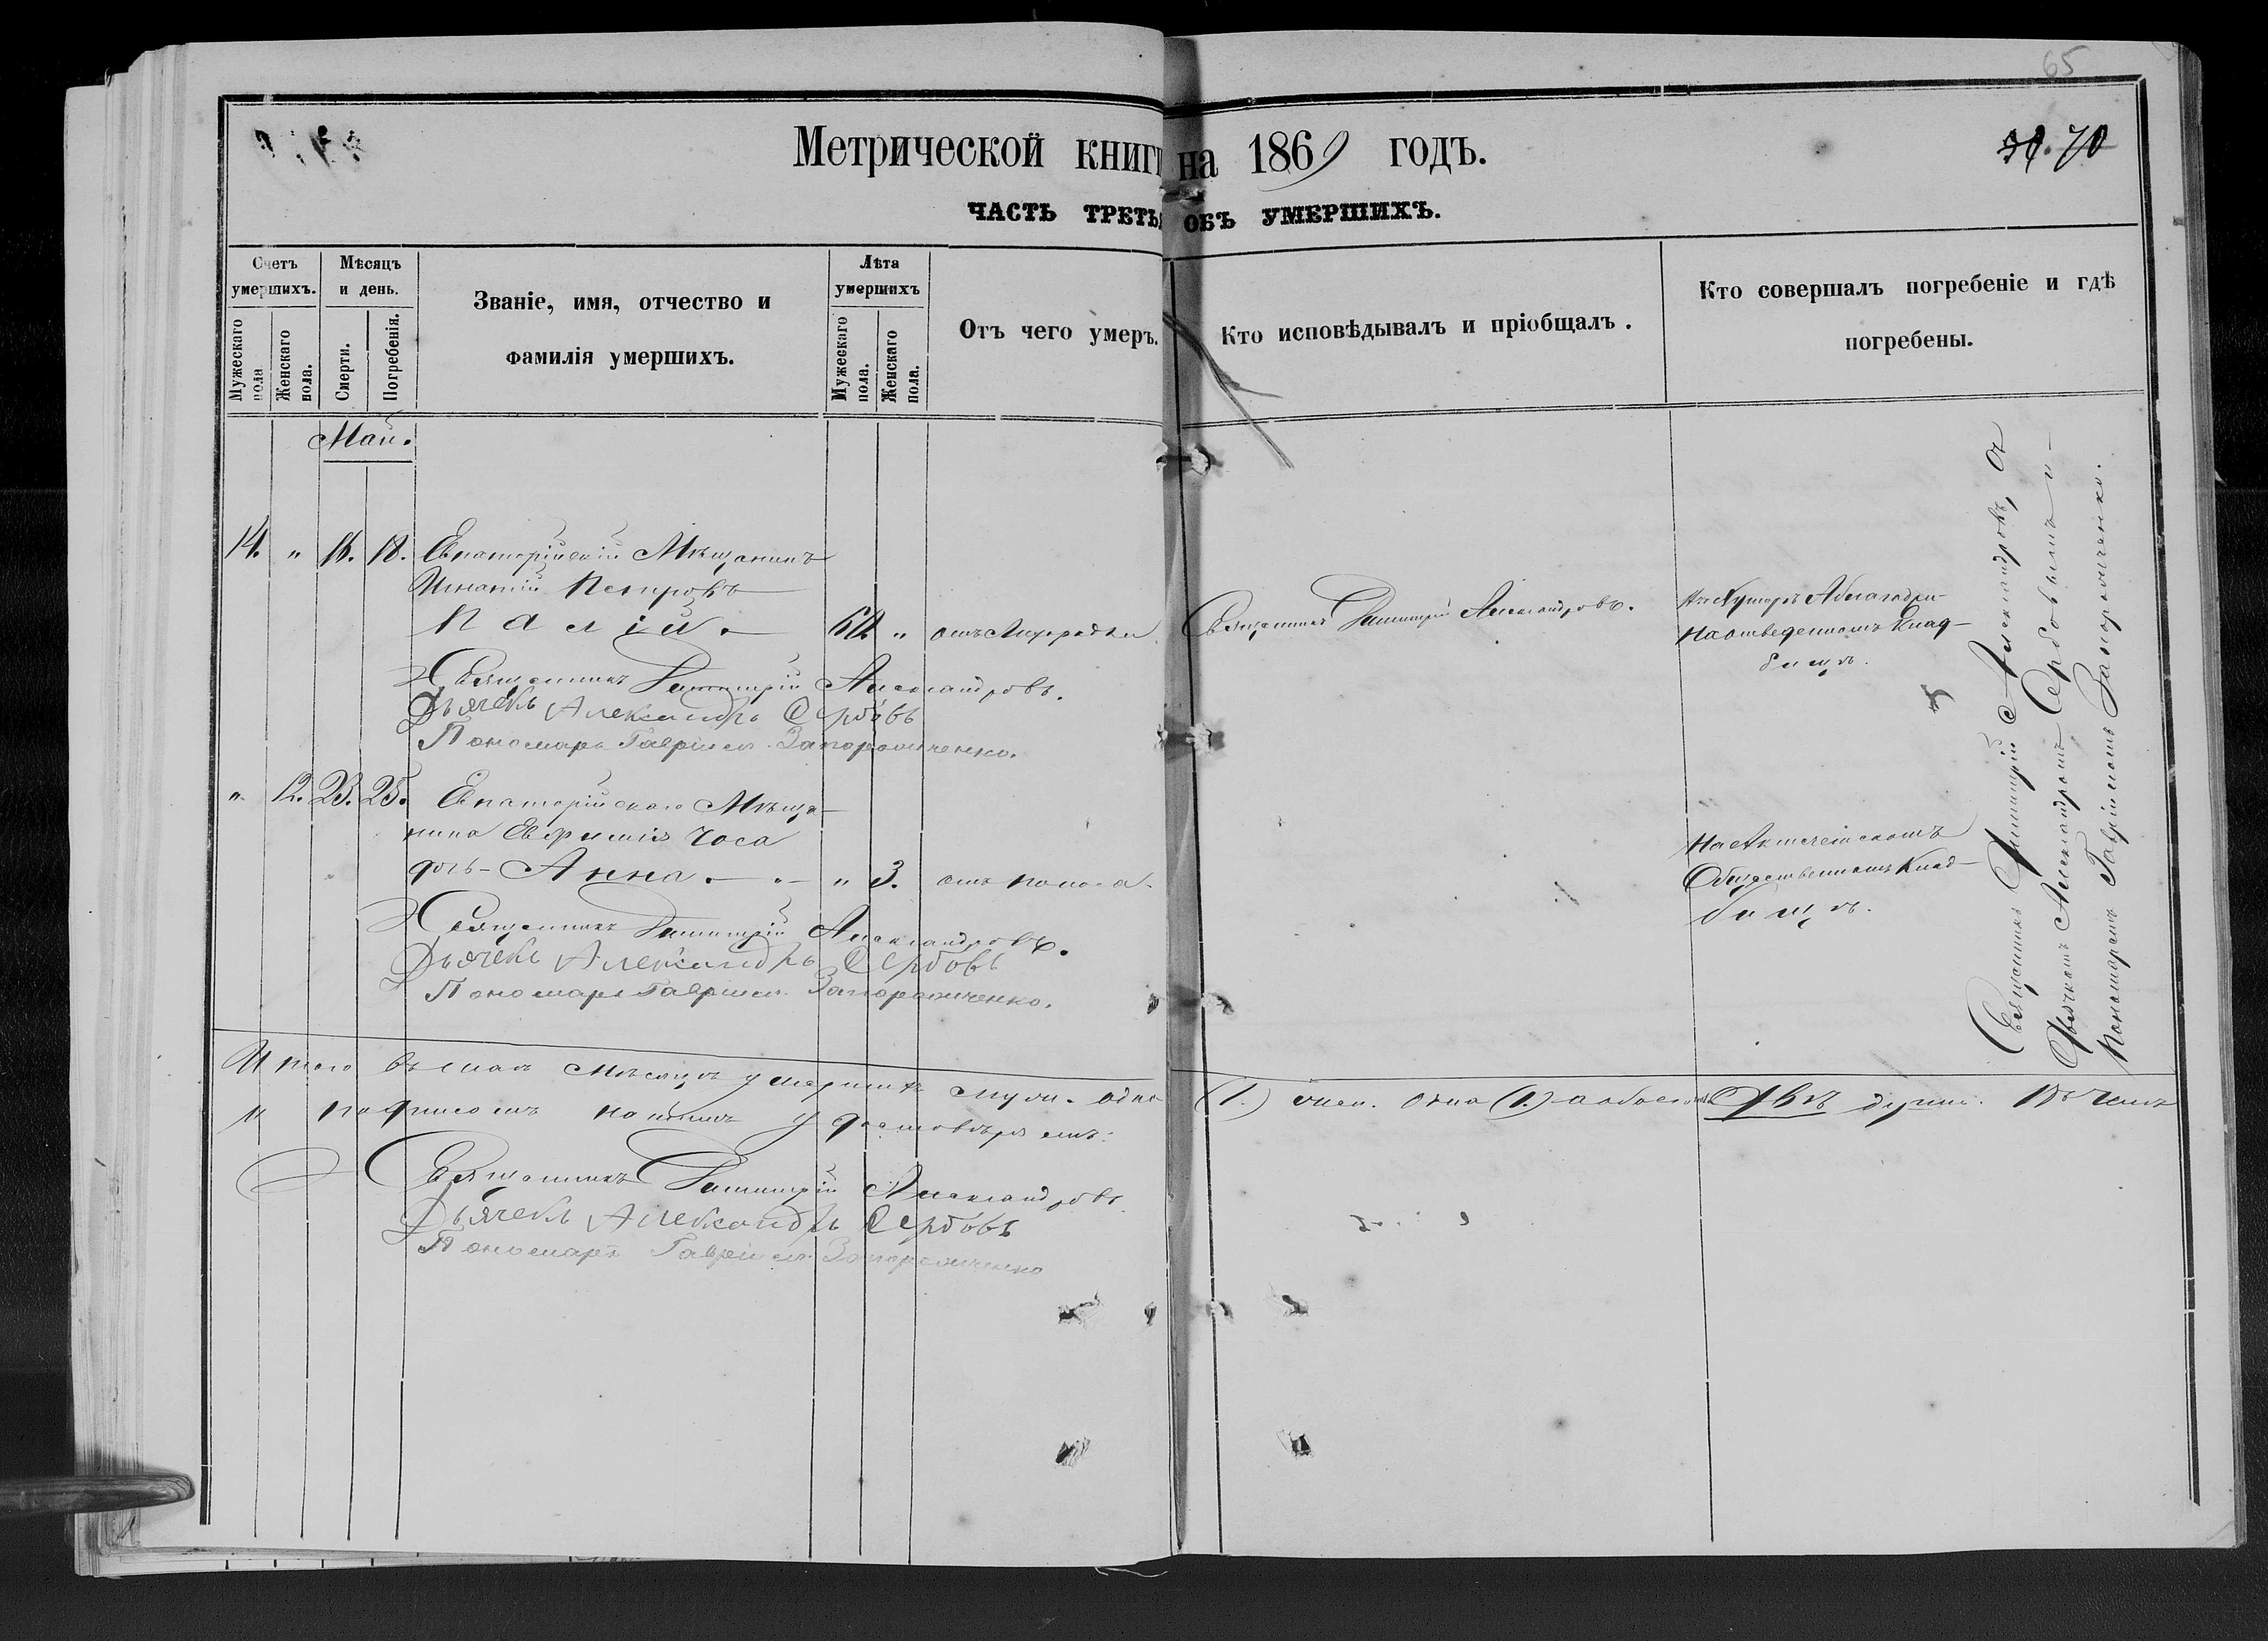 65
70
Метрической книги на 1869 годъ.
ЧАСТЬ ТРЕТЬЯ ОБЪ УМЕРШИХЪ.
Счетъ умершихъ.
Мужескаго пола
Женскаго пола.
Мѣсяцъ и день.
Смерти.
Погребенія.
Званіе, имя, отчество и
фамилія умершихъ.
Лѣта умершихъ
Мужескаго пола.
Женскаго пола.
Отъ чего умеръ.
Кто исповѣдывалъ и пріобщалъ.
Кто совершалъ погребеніе и гдѣ
погребены.
Май.
14. " 16. 18. Евпаторійскій Мѣщанинъ
Игнатій Петровъ
Палій. " отъ Лихорадки
Священникъ Димитрій Александровъ.
На отведенномъ Клад-
бищѣ.
Священникъ Димитрій Александровъ.
Дьячекъ Александръ Сербовъ
Пономарь Гавріилъ Запорожченко.
" 12. 23. 25. Евпаторійскаго Мѣща-
нина Евфимія Чоса
дочь - Анна. " 3. отъ поноса.
На Акмечетскомъ
Общественномъ Клад-
бищѣ.
Священникъ Димитрій Александровъ.
Дьячекъ Александръ Сербовъ
Пономарь Гавріилъ Запорожченко.
Священникъ Димитрій Александровъ, съ
Дьячкомъ Александромъ Сербовымъ и
Пономаремъ Гавріиломъ Запорожченко.
Итого въ маѣ мѣсяцѣ умершихъ муж. одна (1.) жен. одна (1.) а обоего Двѣ души. Въ чемъ
и подписомъ нашимъ удостовѣряемъ:
Священникъ Димитрій Александровъ
Дьячекъ Александръ Сербовъ
Пономарь Гавріилъ Запорожченко